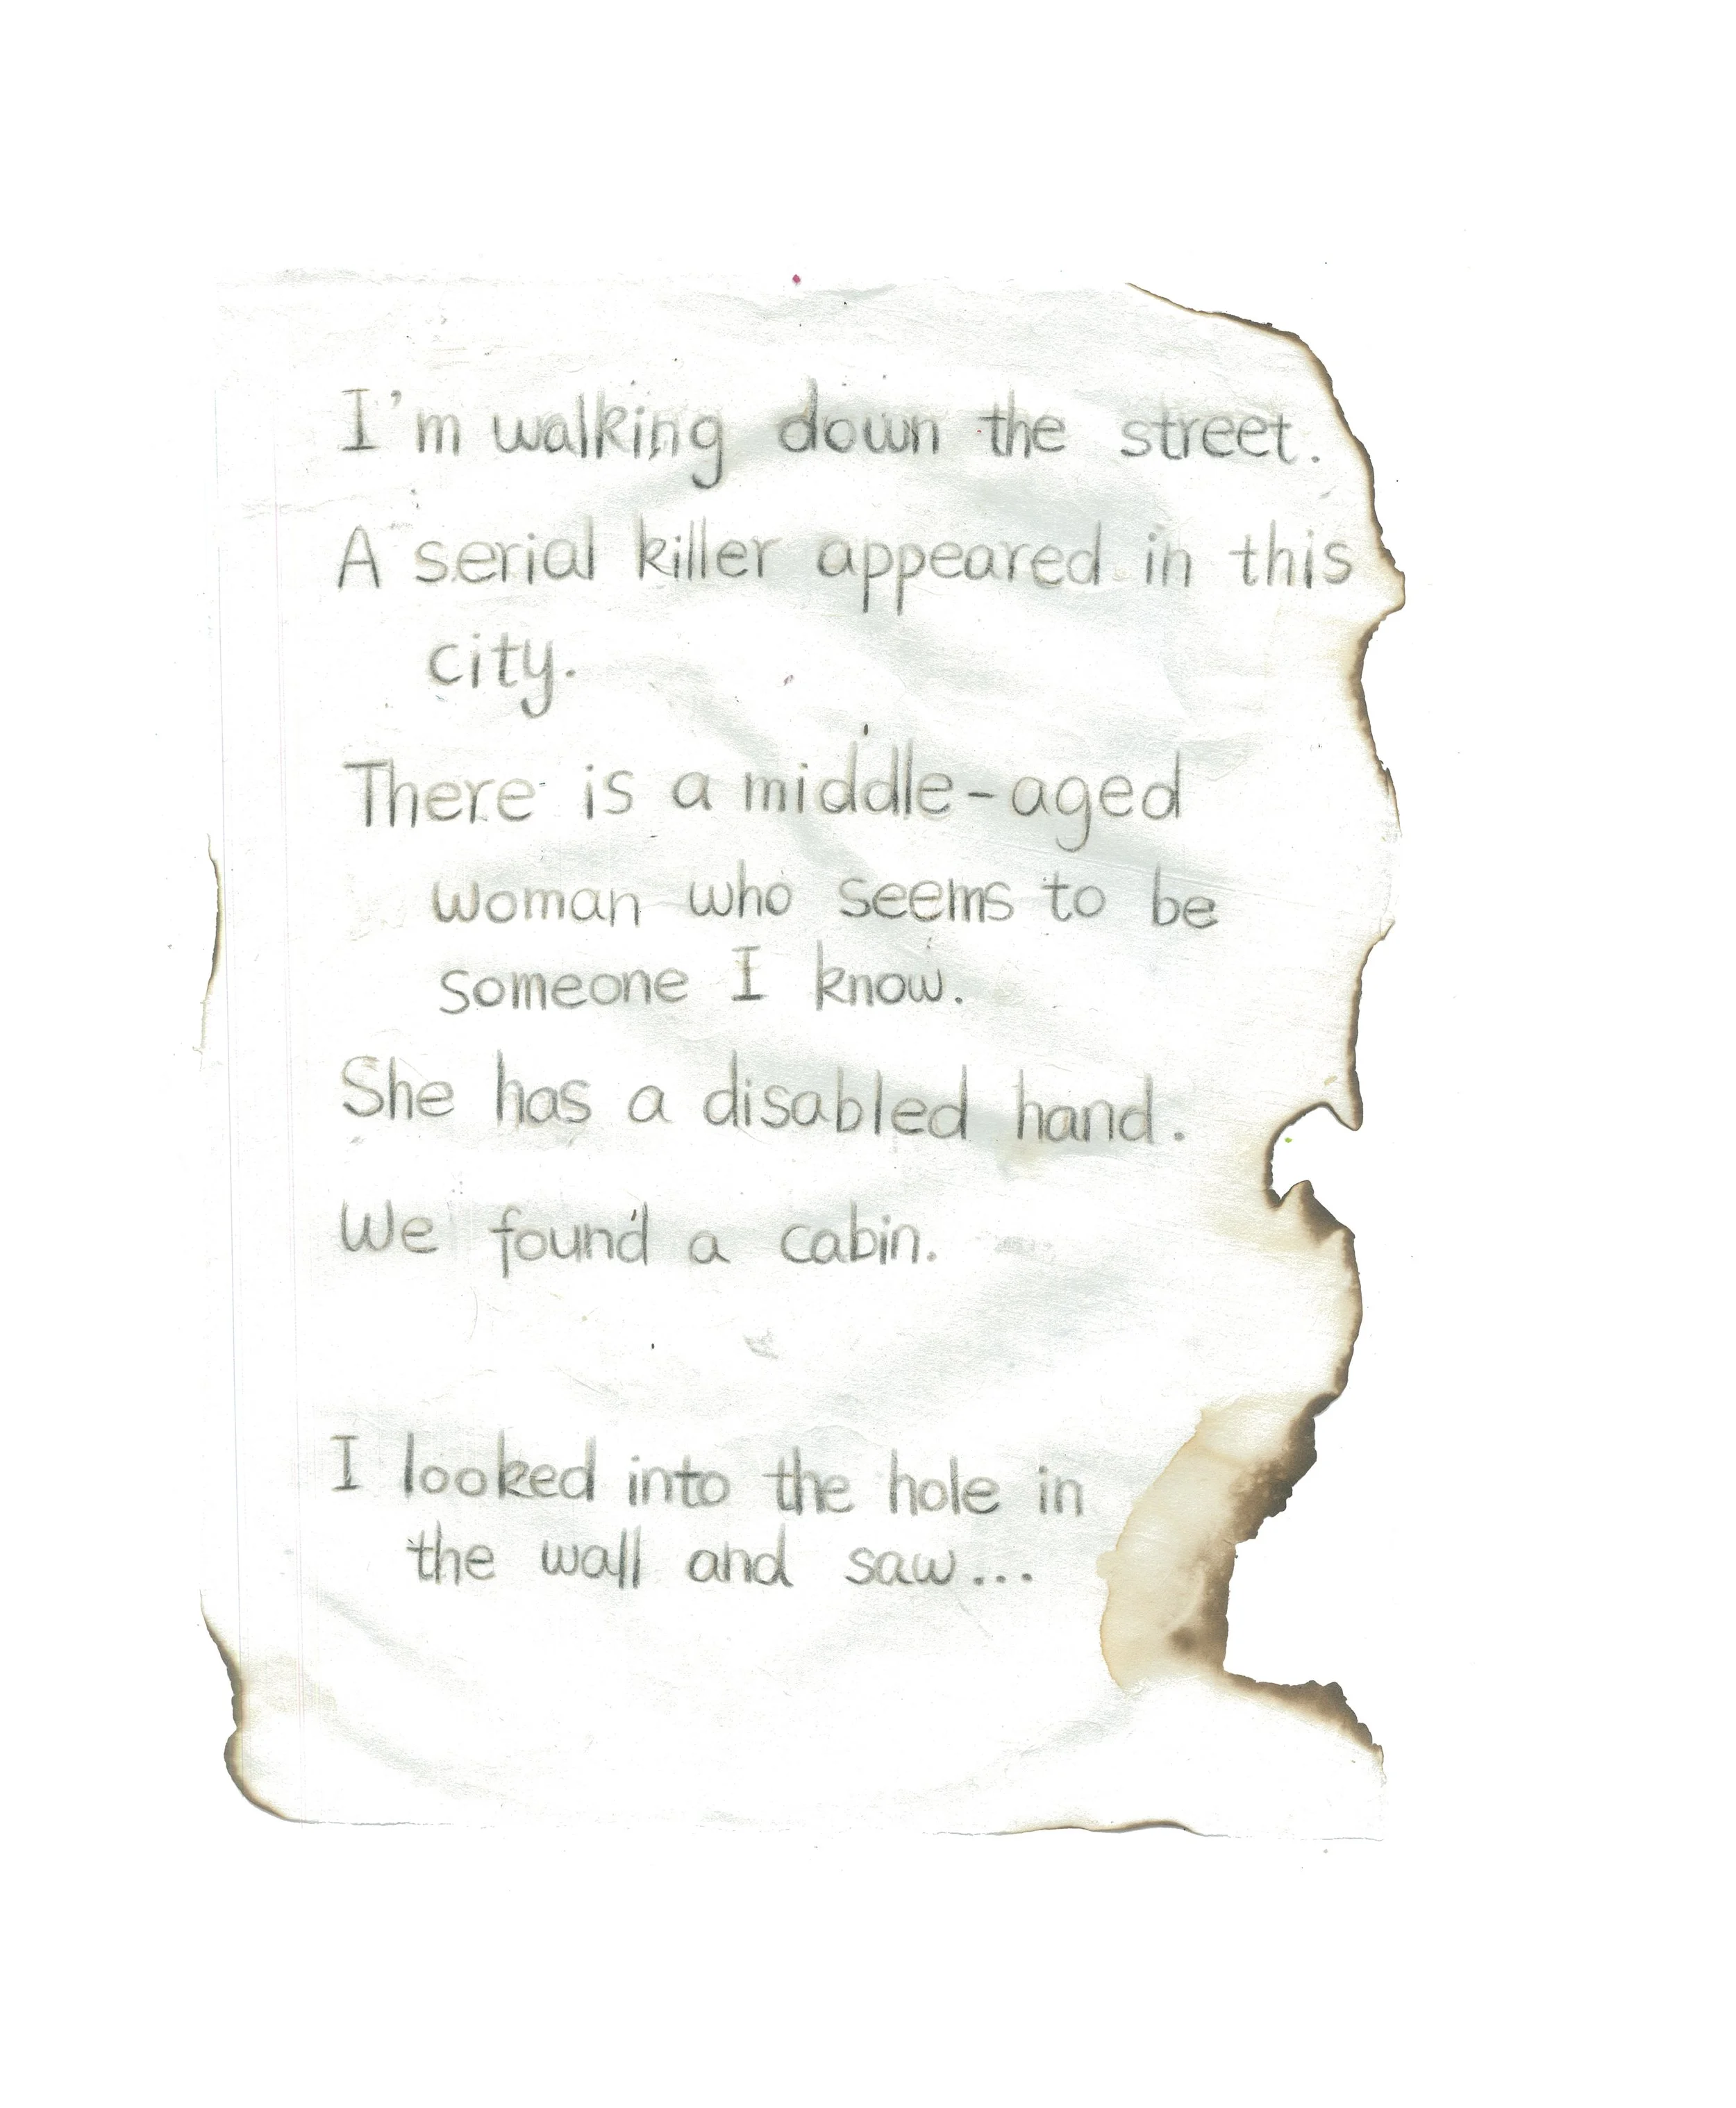 I'm walking down the street.
A serial killer appeared in this
city.
There is a middle-aged
woman who seems to be
someone I know.
She has a disabled hand.
We found a cabin.
I looked into the hole in
the wall and saw...